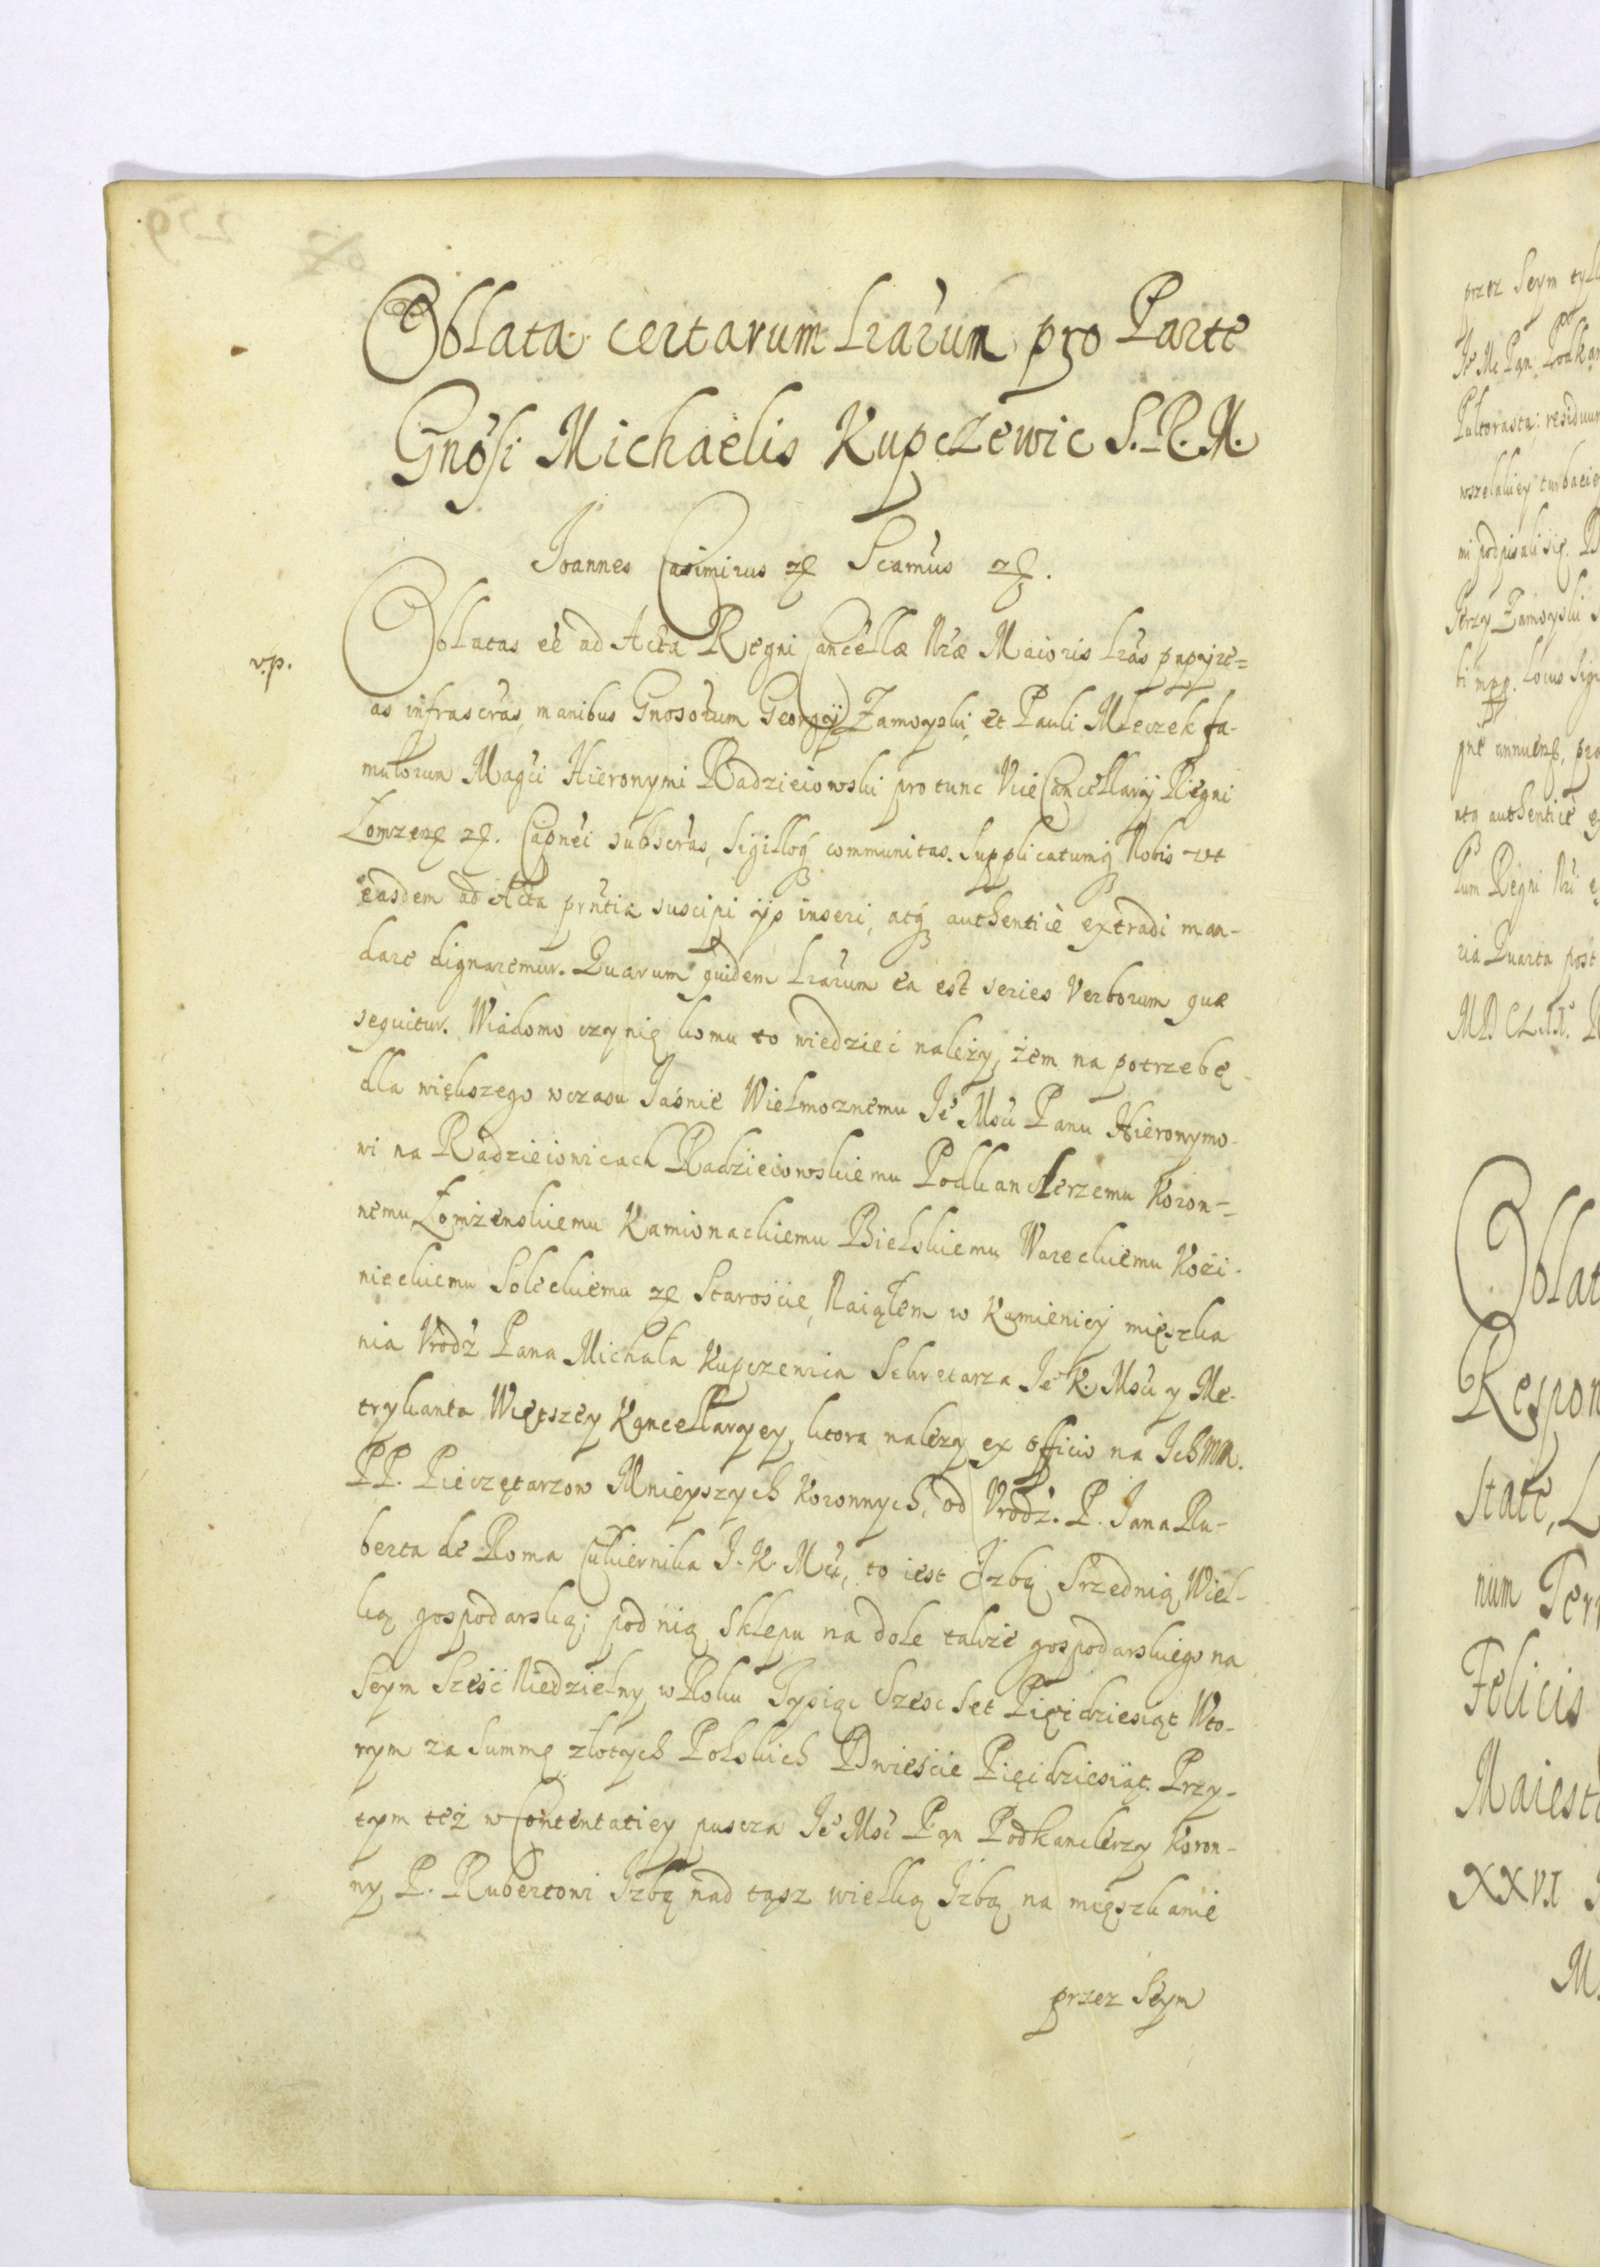 Oblata certarum Lrarum pro Parte
Gnosi Michaelis Kupczewic S.R.M.
Ioannes Casimirus etc Scamus etc.
v.p.
Oblatas eè ad Acta Regni Cancellæ Nræ Maioris Lras papyre=
as infrascras, manibus Gnosorum Georgij Zamoyski, et Pauli Mleczek fa-
mulorum Magci Hieronymi Radzieiowski pro tunc ViceCancellarij Regni
Lomzen etc. Capnei subscras, Sigilloq communitas. Supplicatumq Nobis vt
easdem ad Acta prntia suscipi ijs inseri, atq authenticè extradi man-
dare dignaremur. Quarum quidem Lrarum ea est series Verborum quæ
sequitur. Wiadomo czynię komu to wiedzieć należy, żem na potrzebę
dla większego wczasu Jaśnie Wielmoznemu Je Mści Panu Hieronymo-
wi na Radzieiowicach Radzieiowskiemu Podkanclerzemu Koron=
nemu Łomżenskiemu Kamionackiemu Bielskiemu Wareckiemu Kozi-
nieckiemu Soleckiemu etc Starościе, Naiąłem w Kamienicy mięszka
nia Vrodz Pana Michała Kupczewica Sekretarza Je K. Mści y Me-
trykanta Więtszey Kancellaryey, ktora należy ex officio na Ichmm.
PP. Pieczętarzow Mnieyszych Koronnych, od Vrodz. P. Jana Ru-
berta de Roma Cukiernika J. K. Mci, to iest Jzbę Srzednią Wiel-
ką gospodarską; pod nią Sklepu na dole także gospodarskiego na
Seym Sześć Niedzielny w Roku Tysiąc Szesc Set Pięcdziesiąt Wto-
rym za Summę złotych Polskich Dwieście Pięcdziesiąt. Przy-
tym też w Contentatiey puscza Je Msć Pan Podkanclerzy Koron-
ny P. Rubertoni Izbę nad tąsz wielką Izbą na mięszkanie
przez Seym
przez Seym
Je Mc Pan
residuum
wszelakiey turbaciey
mi podpisali się.
Jerzy Zamoyski
Locus Sigi
authenticè
Regni Nri
ria Quarta post
Oblat
Respon
State, L
num Terr
Felicis
Maiesta
XXVI
M.